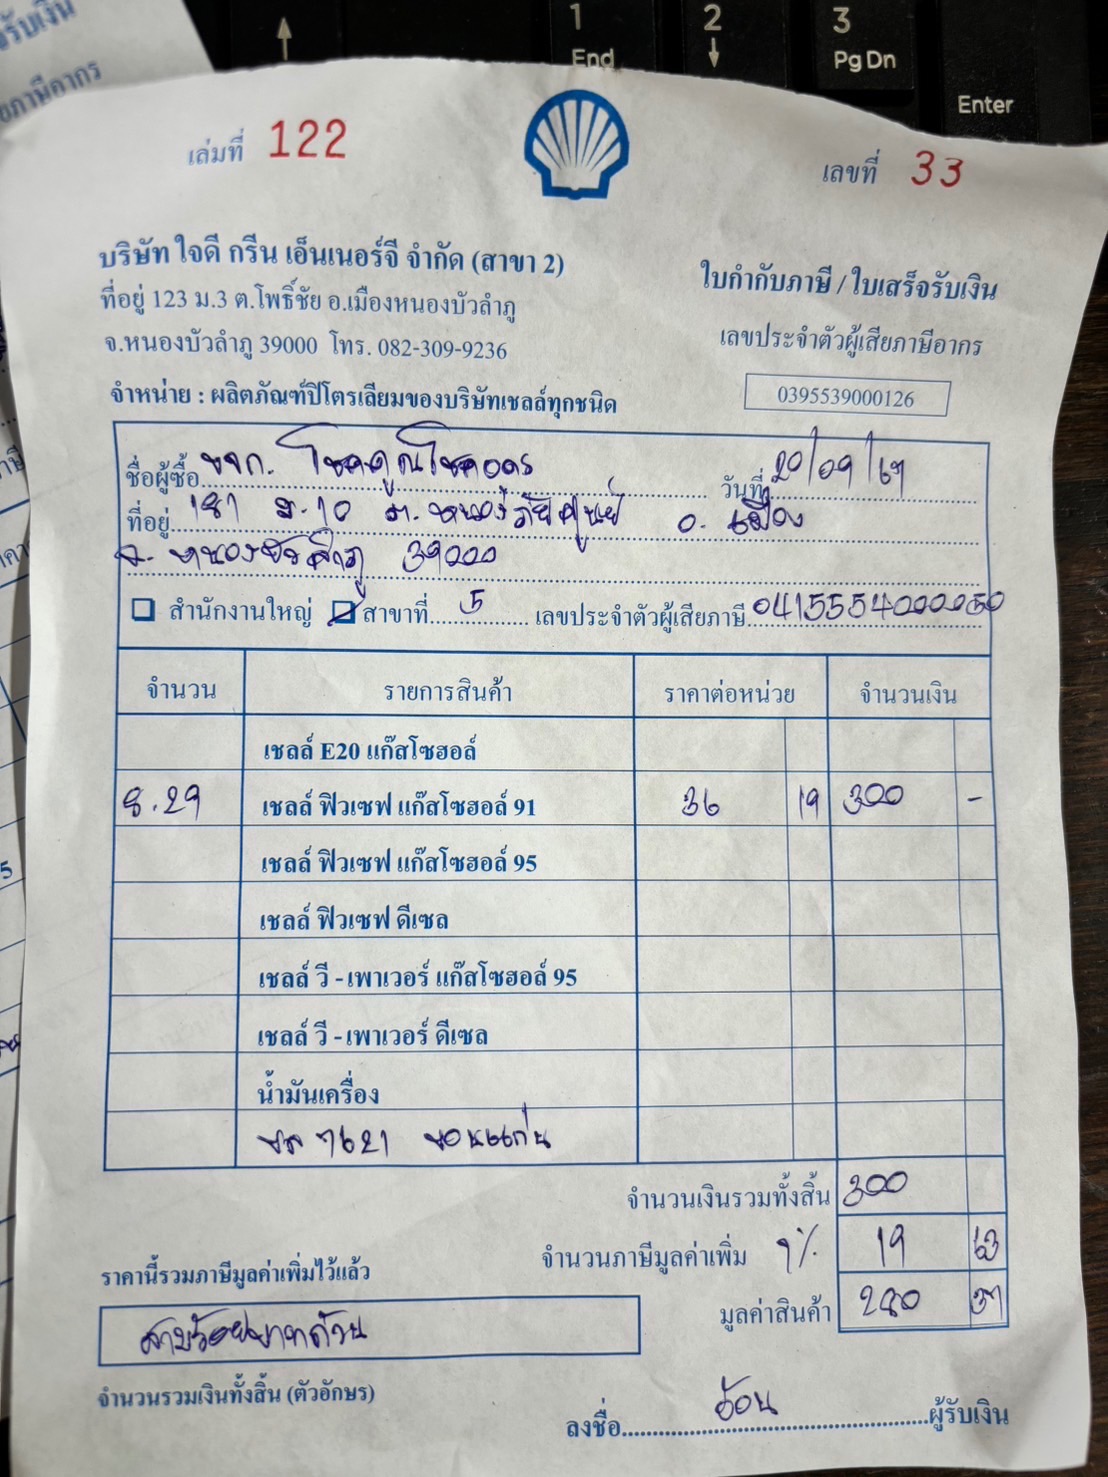 1
End
2
3
Pg Dn
Enter
เล่มที่ 122
เลขที่ 33
บริษัท ใจดี กรีน เอ็นเนอร์จี จำกัด (สาขา 2)
ที่อยู่ 123 ม.3 ต.โพธิ์ชัย อ.เมืองหนองบัวลำภู
จ.หนองบัวลำภู 39000 โทร. 082-309-9236
ใบกำกับภาษี / ใบเสร็จรับเงิน
เลขประจำตัวผู้เสียภาษีอากร
0395539000126
จำหน่าย : ผลิตภัณฑ์ปิโตรเลียมของบริษัทเชลล์ทุกชนิด
ชื่อผู้ซื้อ หจก. โชคคูณโชคอุดร วันที่ 20/09/67
ที่อยู่ 181 ม.10 ต.หนองภัยศูนย์ อ. เมือง
จ. หนองบัวลำภู 39000
สำนักงานใหญ่ สาขาที่ 5 เลขประจำตัวผู้เสียภาษี 0415554000050
จำนวน รายการสินค้า ราคาต่อหน่วย จำนวนเงิน
เชลล์ E20 แก๊สโซฮอล์
8.29 เชลล์ ฟิวเซฟ แก๊สโซฮอล์ 91 36 19 300 -
เชลล์ ฟิวเซฟ แก๊สโซฮอล์ 95
เชลล์ ฟิวเซฟ ดีเซล
เชลล์ วี - เพาเวอร์ แก๊สโซฮอล์ 95
เชลล์ วี - เพาเวอร์ ดีเซล
น้ำมันเครื่อง
7621 ขอนแก่น
จำนวนเงินรวมทั้งสิ้น 300
จำนวนภาษีมูลค่าเพิ่ม 7% 19 63
ราคานี้รวมภาษีมูลค่าเพิ่มไว้แล้ว
มูลค่าสินค้า 280 37
สามร้อยบาทถ้วน
จำนวนรวมเงินทั้งสิ้น (ตัวอักษร)
ลงชื่อ อ้อน ผู้รับเงิน